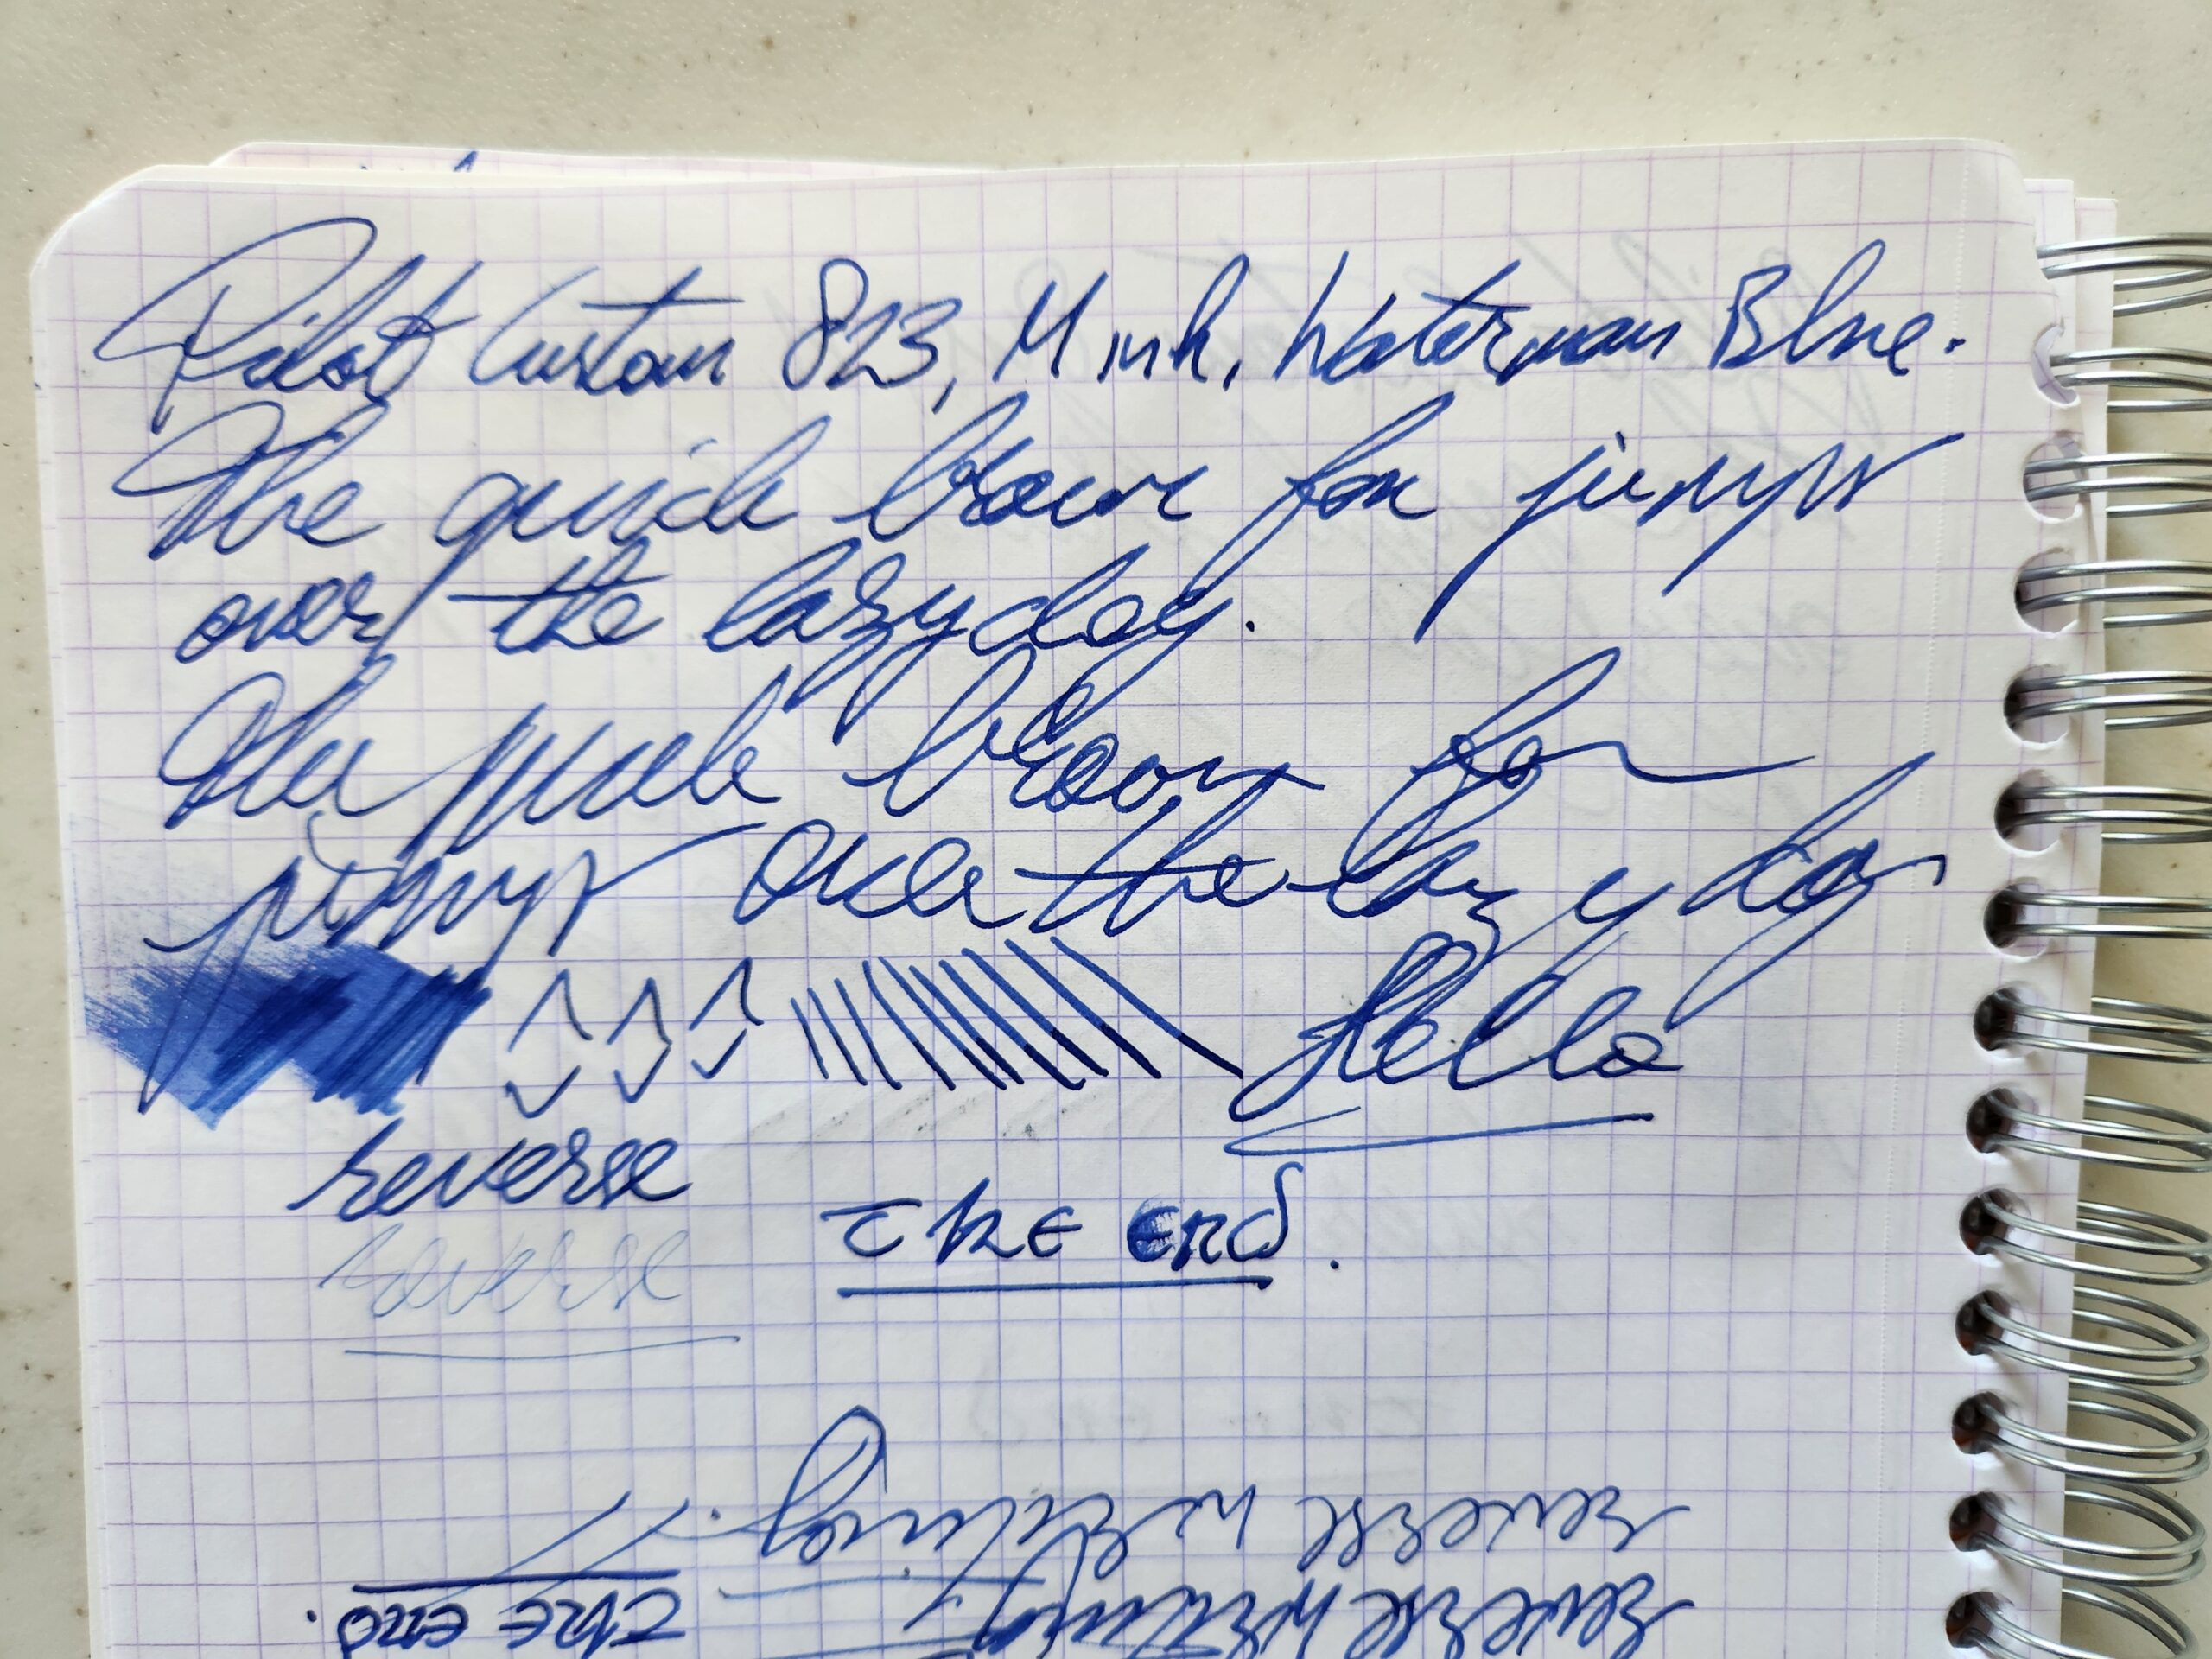 Pilot Custom 823, M ink, Waterman Blue.
The quick brown fox jumps
over the lazy dog.
The quick brown fox
jumps over the lazy dog
Hello
reverse
reverse
the end.
reverse writing.
reverse writing
the end.